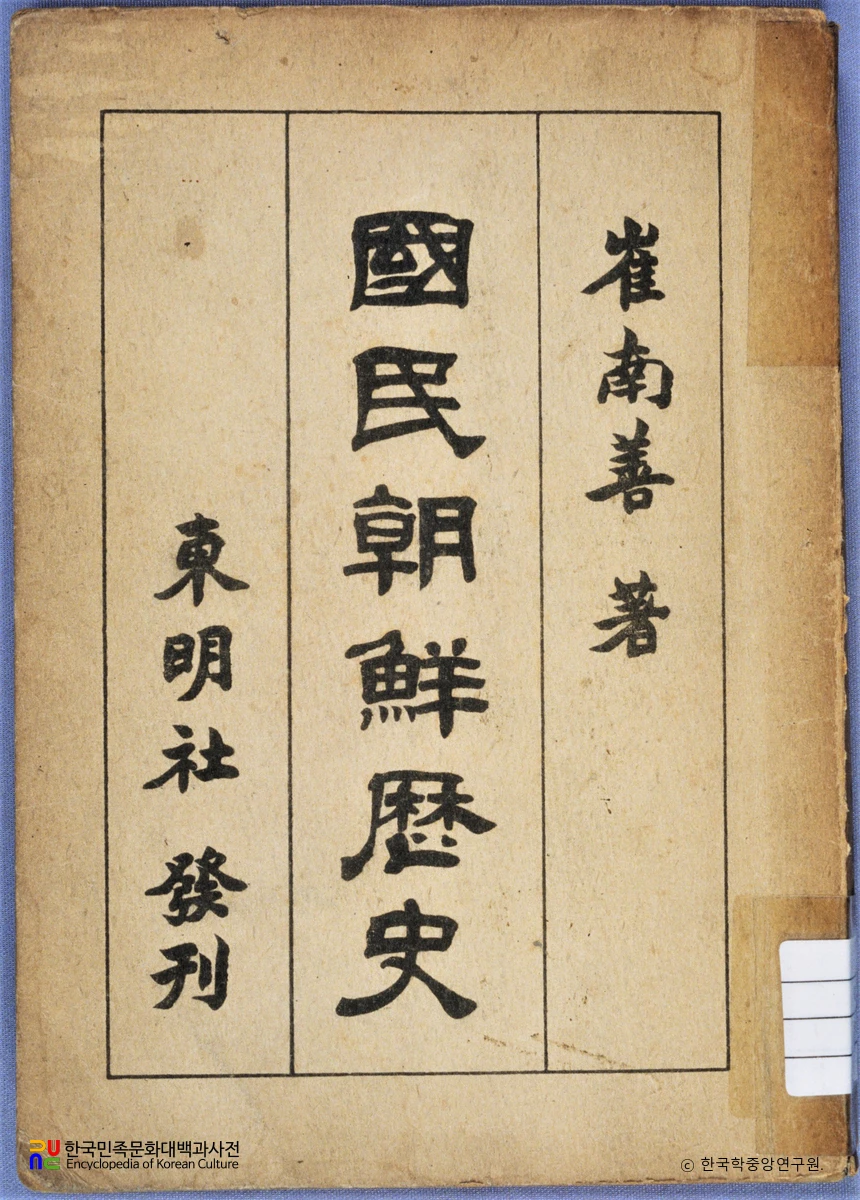 崔南善 著
國民朝鮮歷史
東明社 發刊
한국민족문화대백과사전
Encyclopedia of Korean Culture
ⓒ 한국학중앙연구원.